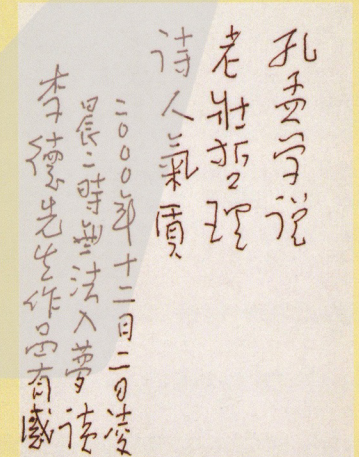 孔孟学说
老壯哲理
诗人氣質
二〇〇〇年十二月二日凌
晨二時無法入夢读
李德先生作品有感